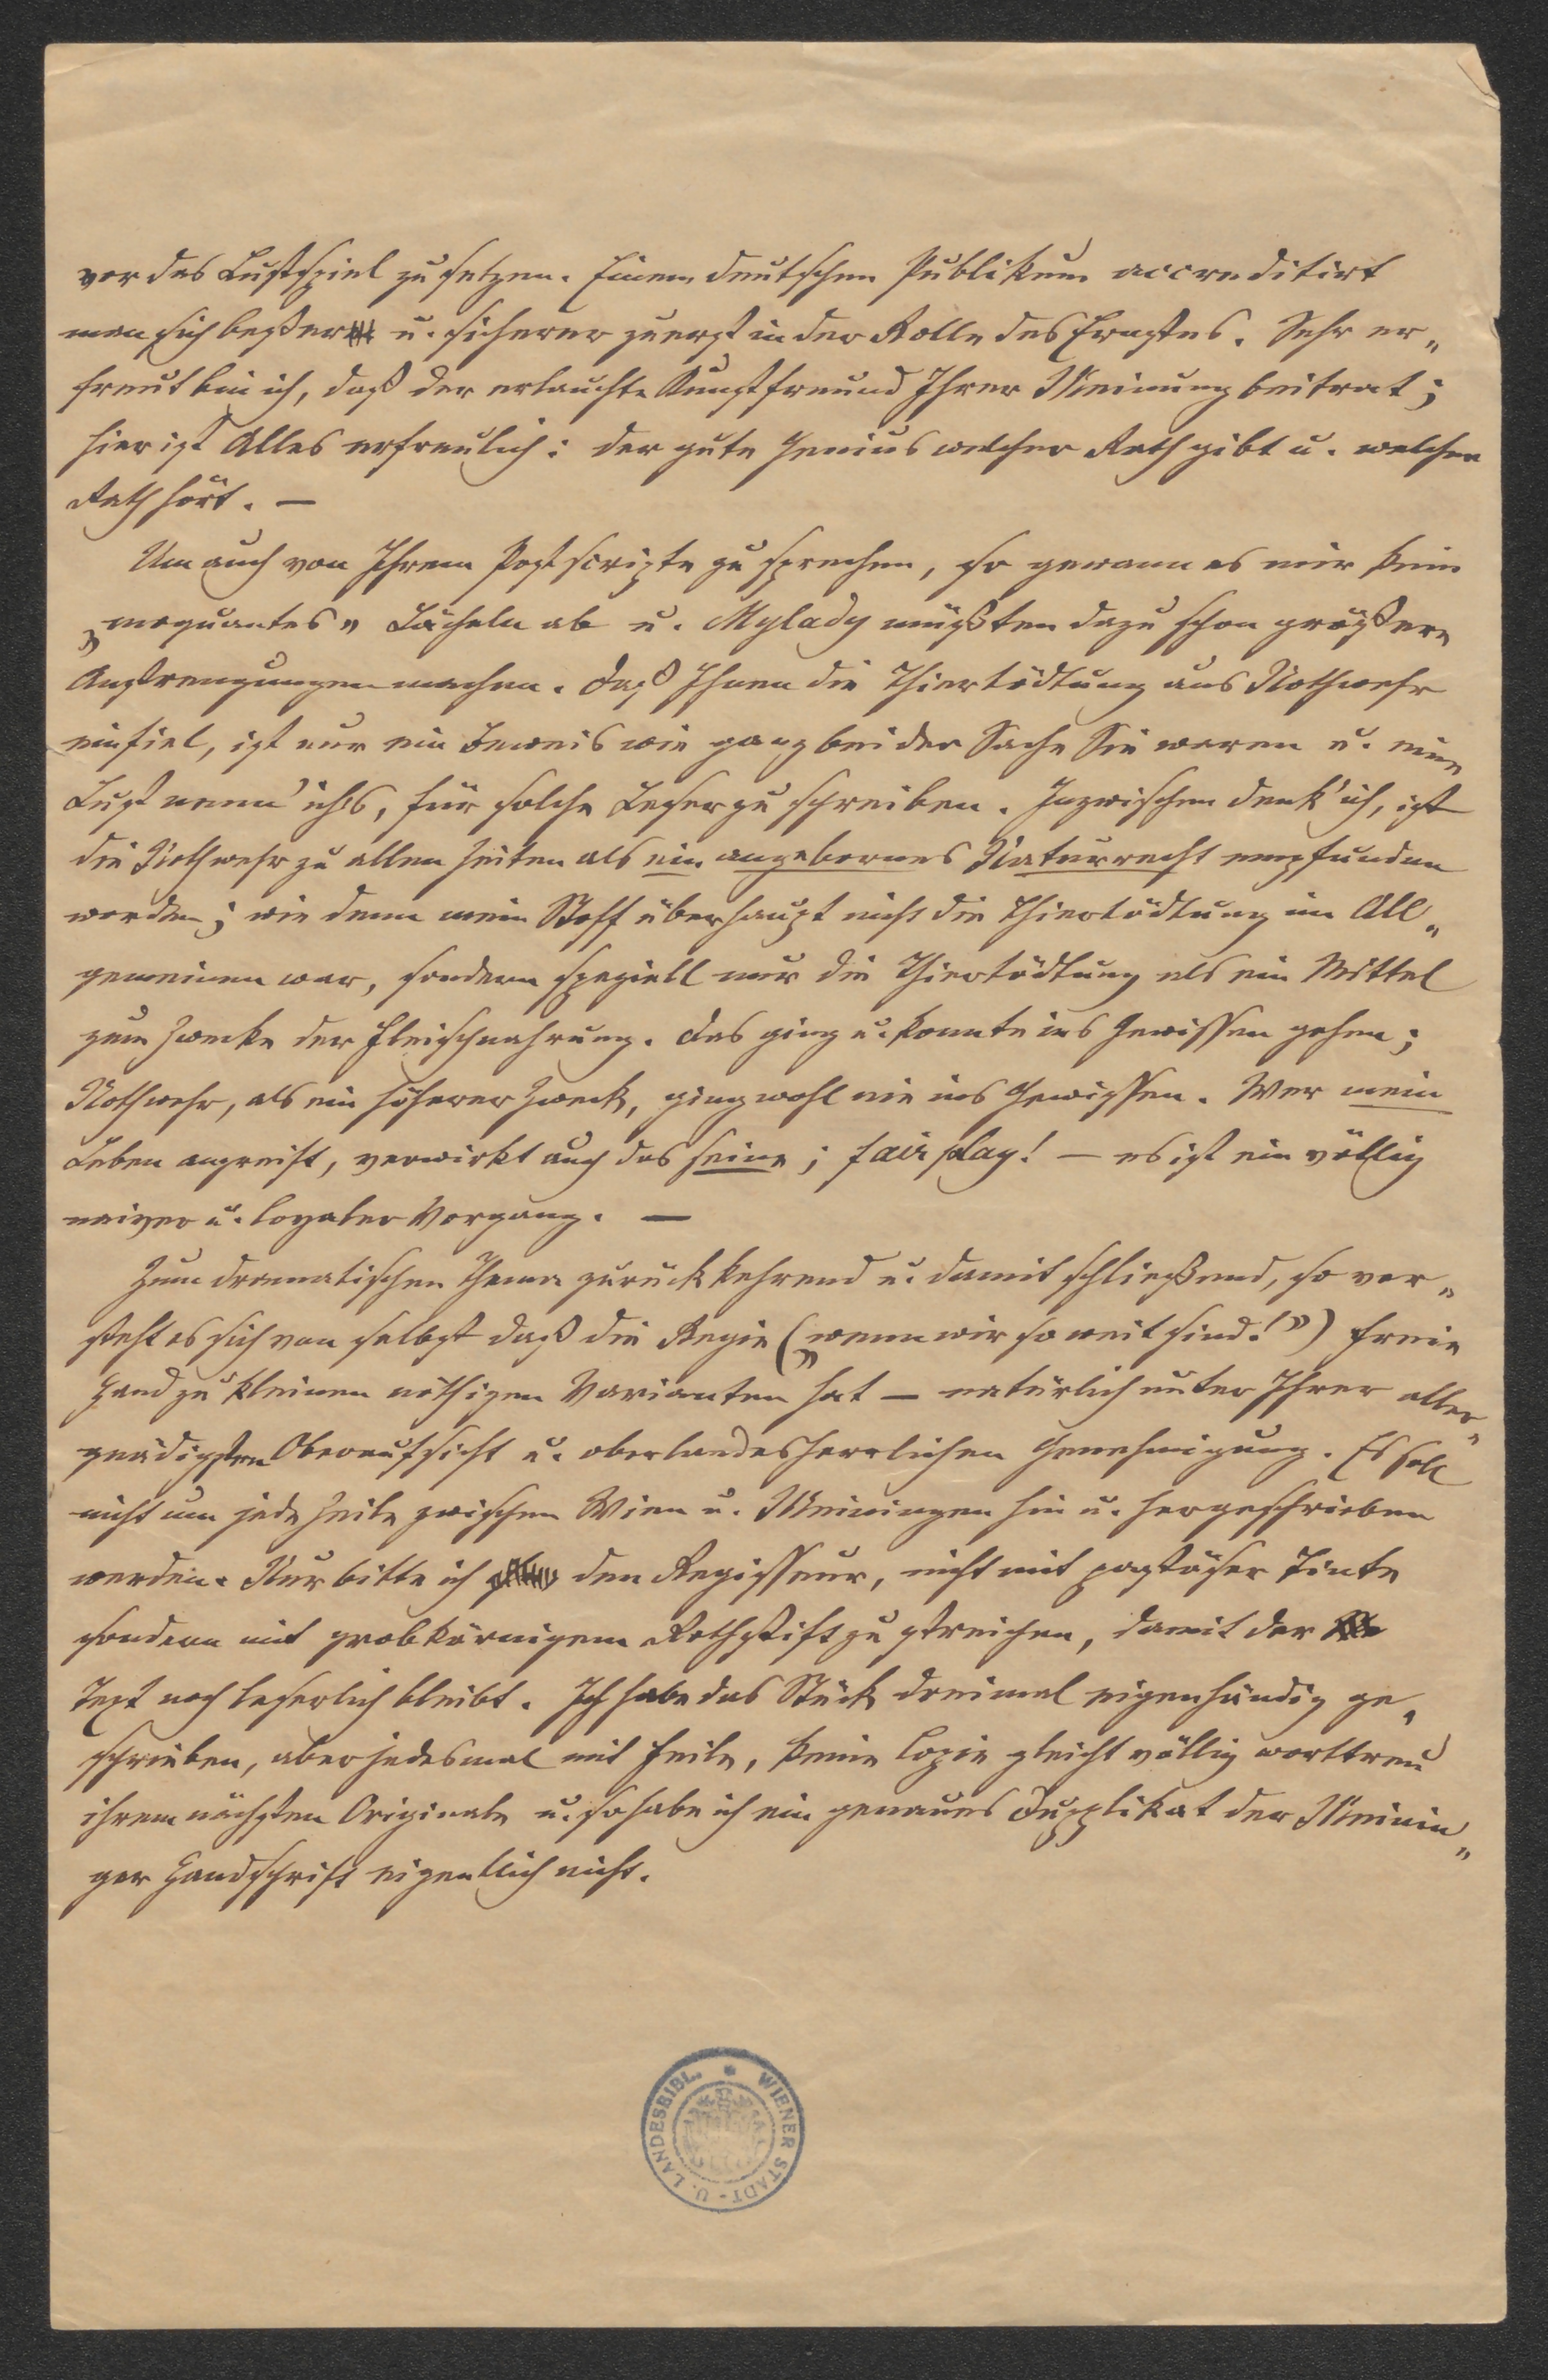 vor das Lustspiel zu setzen. Einem deutschen Publikum accreditirt
man sich beßer u. sicherer zuerst in der Rolle des Ernstes. Sehr er„
freut bin ich, daß der erlauchte Kunstfreund Ihrer Meinung beitrat;
hier ist Alles erfreulich: der gute Genius welcher Rath gibt u. welcher
Rath hört. —
Um auch von Ihrem Postscripte zu sprechen, so gewann es mir kein
„moquantes" Lächeln ab u. Mylady müßten dazu schon größere
Anstrengungen machen. Daß Ihnen die Thiertödtung aus Nothwehr
einfiel, ist nur ein Beweis wie ganz bei der Sache Sie waren u. eine
Lust nenn' ichs, für solche Leser zu schreiben. Inzwischen denk' ich, ist
die Nothwehr zu allen Zeiten als ein angebornes Naturrecht empfunden
worden; wie denn mein Stoff überhaupt nicht die Thiertödtung im All„
gemeinen war, sondern speziell nur die Thiertödtung als ein Mittel
zum Zwecke der Fleischnahrung. Das ging u. konnte ins Gewissen gehen;
Nothwehr, als ein höherer Zweck, ging wohl nie ins Gewissen. Wer mein
Leben angreift, verwirkt auch das seine; fair play! — es ist ein völlig
naiver u. loyaler Vorgang. —
Zum dramatischen Thema zurückkehrend u. damit schließend, so ver„
steht es sich von selbst daß die Regie („wenn wir so weit sind!") freie
Hand zu kleinen nöthigen Varianten hat — natürlich unter Ihrer aller„
gnädigsten Oberaufsicht u. oberlandesherrlichen Genehmigung. Es soll
nicht um jede Zeile zwischen Wien u. Meiningen hin u. hergeschrieben
werden. Nur bitte ich den Regisseur, nicht mit pastöser Tinte
sondern mit grobkörnigem Rothstift zu streichen, damit der
Text noch leserlich bleibt. Ich habe das Stück dreimal eigenhändig ge„
schrieben, aber jedesmal mit Feile, keine Copie gleicht völlig worttreu
ihrem nächsten Originale u. so habe ich ein genaues Dupplikat der Meinin„
ger Handschrift eigentlich nicht.
WIENER STADT- U. LANDESBIBL.